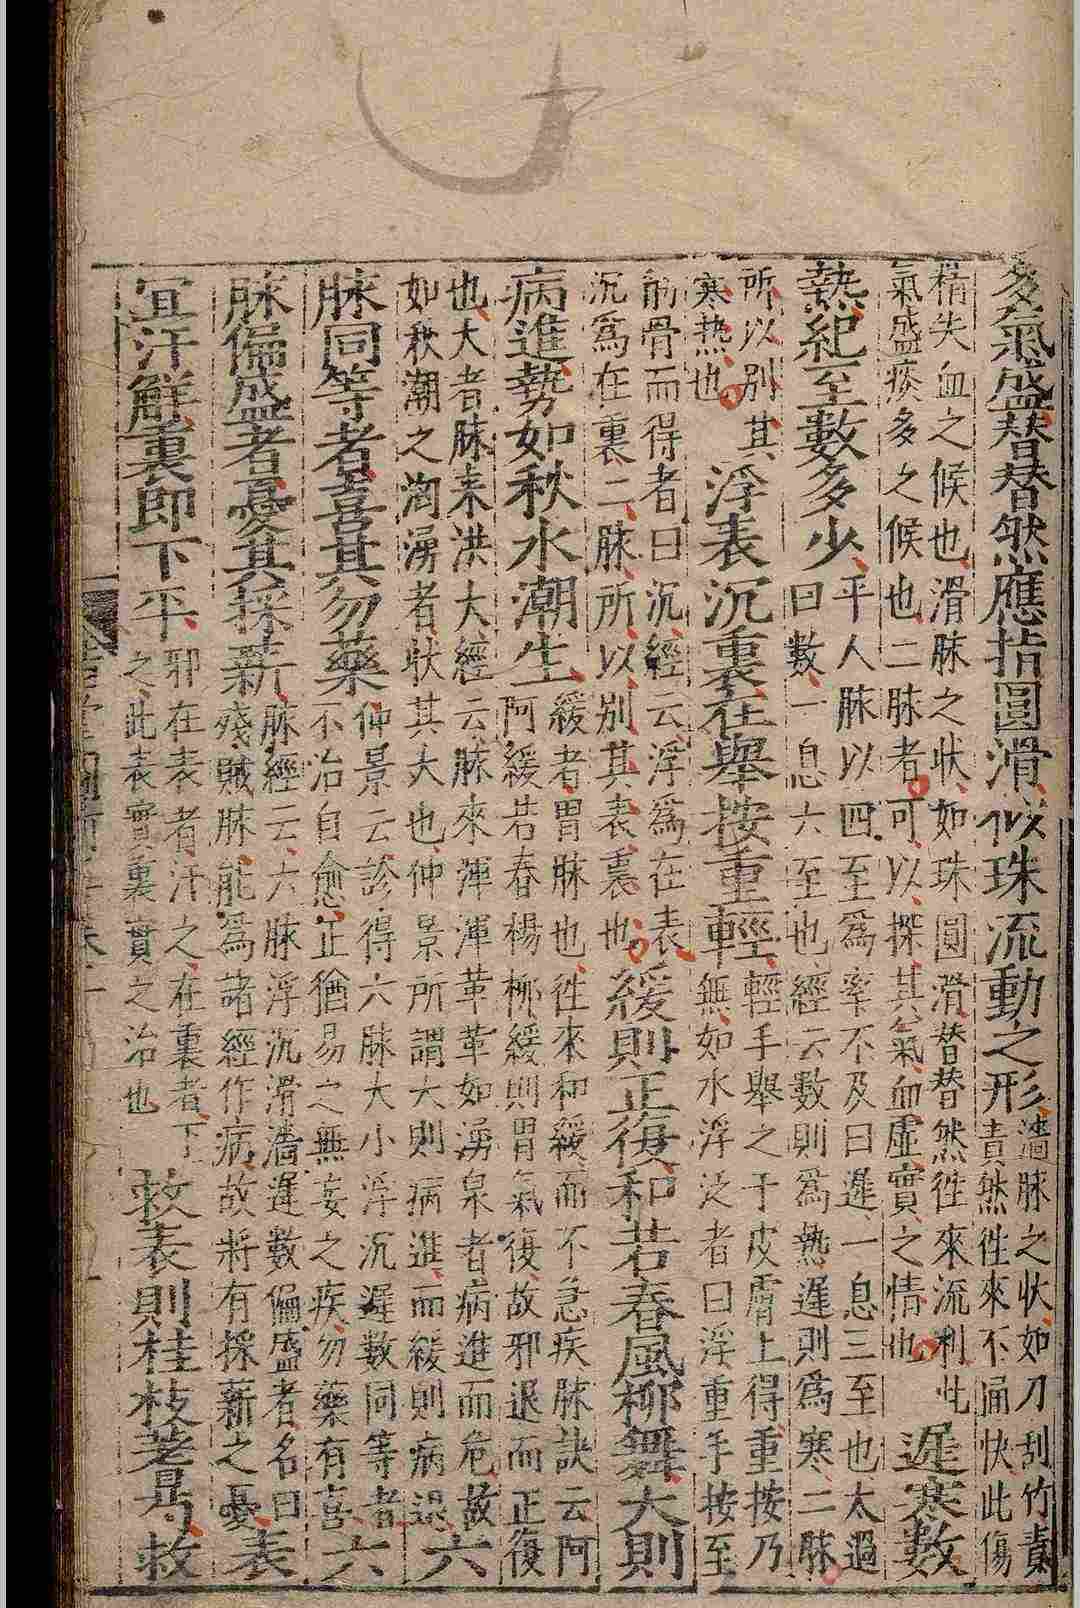 多氣盛替替然應指圓滑似珠流動之形
濇脉之状如刀刮竹責
責然徃來不甬快此傷
精失血之候也滑脉之状如珠圓滑替替然徃來流利此
氣盛痰多之候也二脉者可以探其氣血虛實之情也
遲寒數
熱紀至數多少
平人脉以四至爲率不及曰遲一息三至也太過
曰數一息六至也經云數則爲熱遲則爲寒二脉
所以别其
寒热也
浮表沉裏在舉按重輕
輕手舉之于皮膚上得重按乃
無如水浮泛者曰浮重手按至
筋骨而得者曰沉經云浮爲在表
沉爲在裏二脉所以别其表裏也
緩則正復和若春風柳舞大則
病進勢如秋水潮生
緩者胃脉也徃來和緩而不急疾脉訣云阿
阿緩若春楊柳緩則胃氣復故邪退而正復
也大者脉来洪大經云脉來渾渾革革如湧泉者病進而危故
如秋潮之洶湧者狀其大也仲景所謂大則病進而緩則病退
六
脉同等者喜其勿藥
仲景云診得六脉大小浮沉遲數同等者
不治自愈正猶易之無妄之疾勿藥有喜
六
脉偏盛者憂其採薪
脉經云六脉浮沉滑濇遲數偏盛者名曰
殘賊脉能爲諸經作病故將有採薪之憂
表
宜汗鮮裏即下平
邪在表者汗之在裏者下
之此表實裏實之治也
救表則桂枝芪救